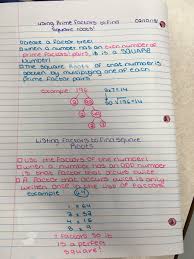 Using Prime Factors to Find
Square Roots!
Create a factor tree!
When a number has an even number of
prime factor pairs, it is a SQUARE
Number!
The square roots of that number is
given by multiplying one of each
prime factor pairs!
Example 196
2x7=14
2 98
2 49
7 7
So √196=14
Listing Factors to Find Square
Roots
Use the factors of the number!
When a number has an ODD number
of factors that occurs twice
A factor that occurs twice is only
written once in the list of factors!
Example 64
1 x 64
2 x 32
4 x 16
8 x 8
7 factors so it
is a perfect
square!